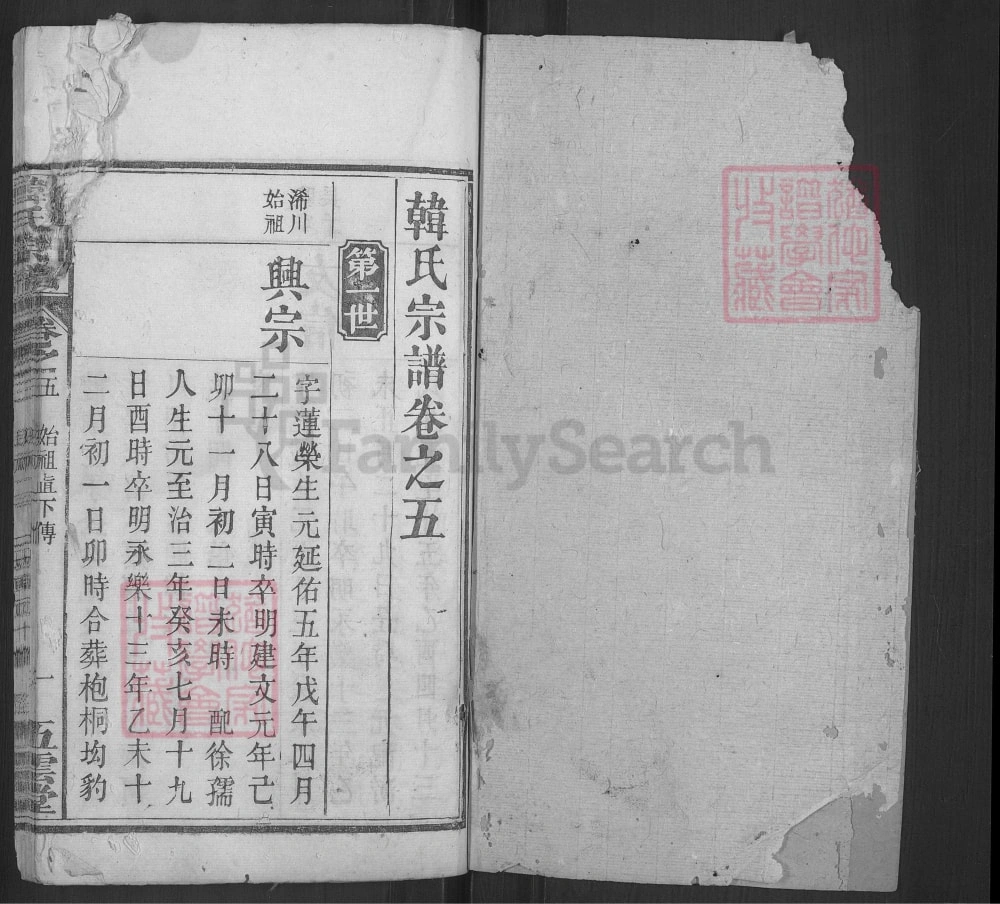 韓氏宗譜卷之五
第一世
浠川
始祖
興宗
字蓮榮生元延佑五年戊午四月
二十八日寅時卒明建文元年己
卯十一月初二日未時 配徐孺
人生元至治三年癸亥七月十九
日酉時卒明永樂十三年乙未十
二月初一日卯時合葬枹桐坳豹
韓氏宗譜
卷之五
始祖 下傳
一
五雲堂
FamilySearch
譜學會
收藏